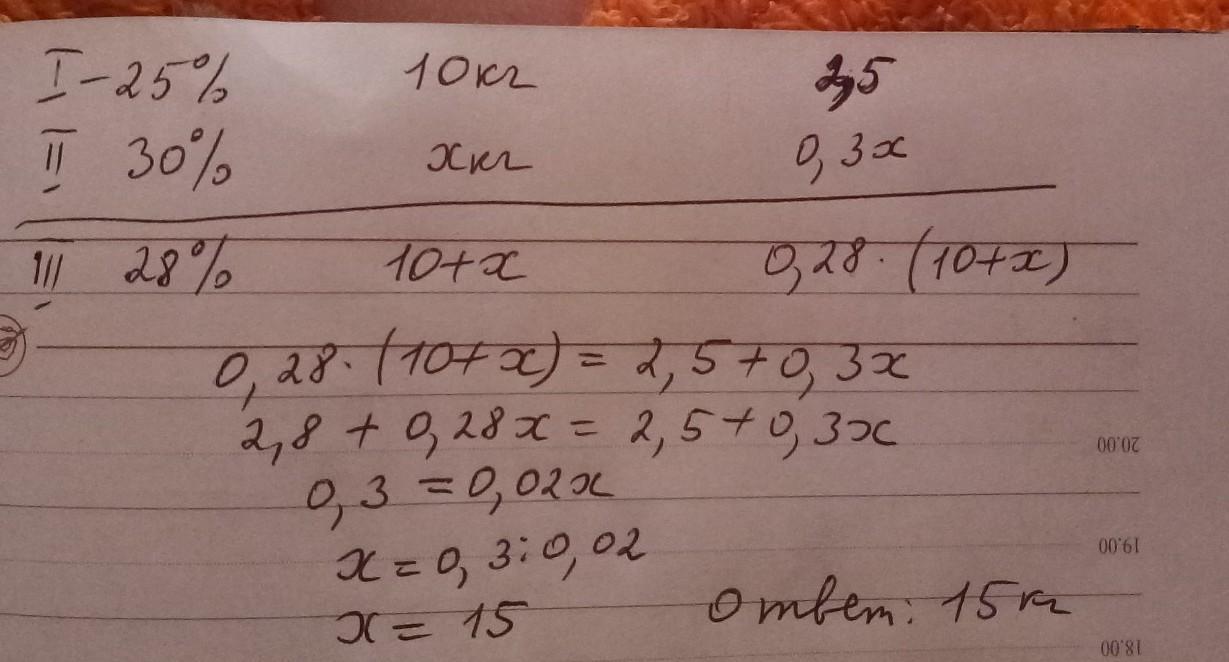 I - 25% 10кг 2,5
II 30% xкг 0,3x
III 28% 10+x 0,28·(10+x)
0,28·(10+x) = 2,5+0,3x
2,8 + 0,28x = 2,5+0,3x
20.00
0,3 = 0,02x
x = 0,3:0,02
19.00
x = 15 Ответ: 15 кг
18.00